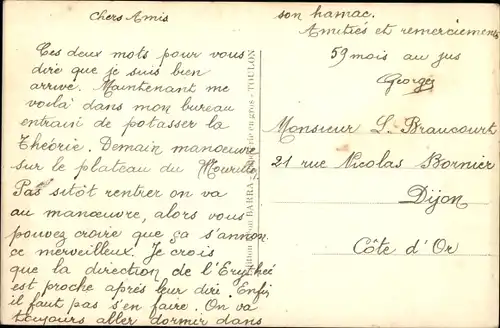 Chers Amis
Ces deux mots pour vous
dire que je suis bien
arrive. Maintenant me
voilà dans mon bureau
entrain de potasser la
Théorie. Demain manœuvre
sur le plateau du Mourillon
Pas sitôt rentrer on va
au manœuvre, alors vous
pouvez croire que ça s'annon
ce merveilleux. Je crois
que la direction de l'Erythée
est proche après leur dire. Enfin
il faut pas s'en faire. On va
toujours aller dormir dans
son hamac.
Amitiés et remerciements
59 mois au jus
Georges
BARRA en gros - TOULON
Monsieur L. Braucourt
21 rue Nicolas Bornier
Dijon
Côte d'Or